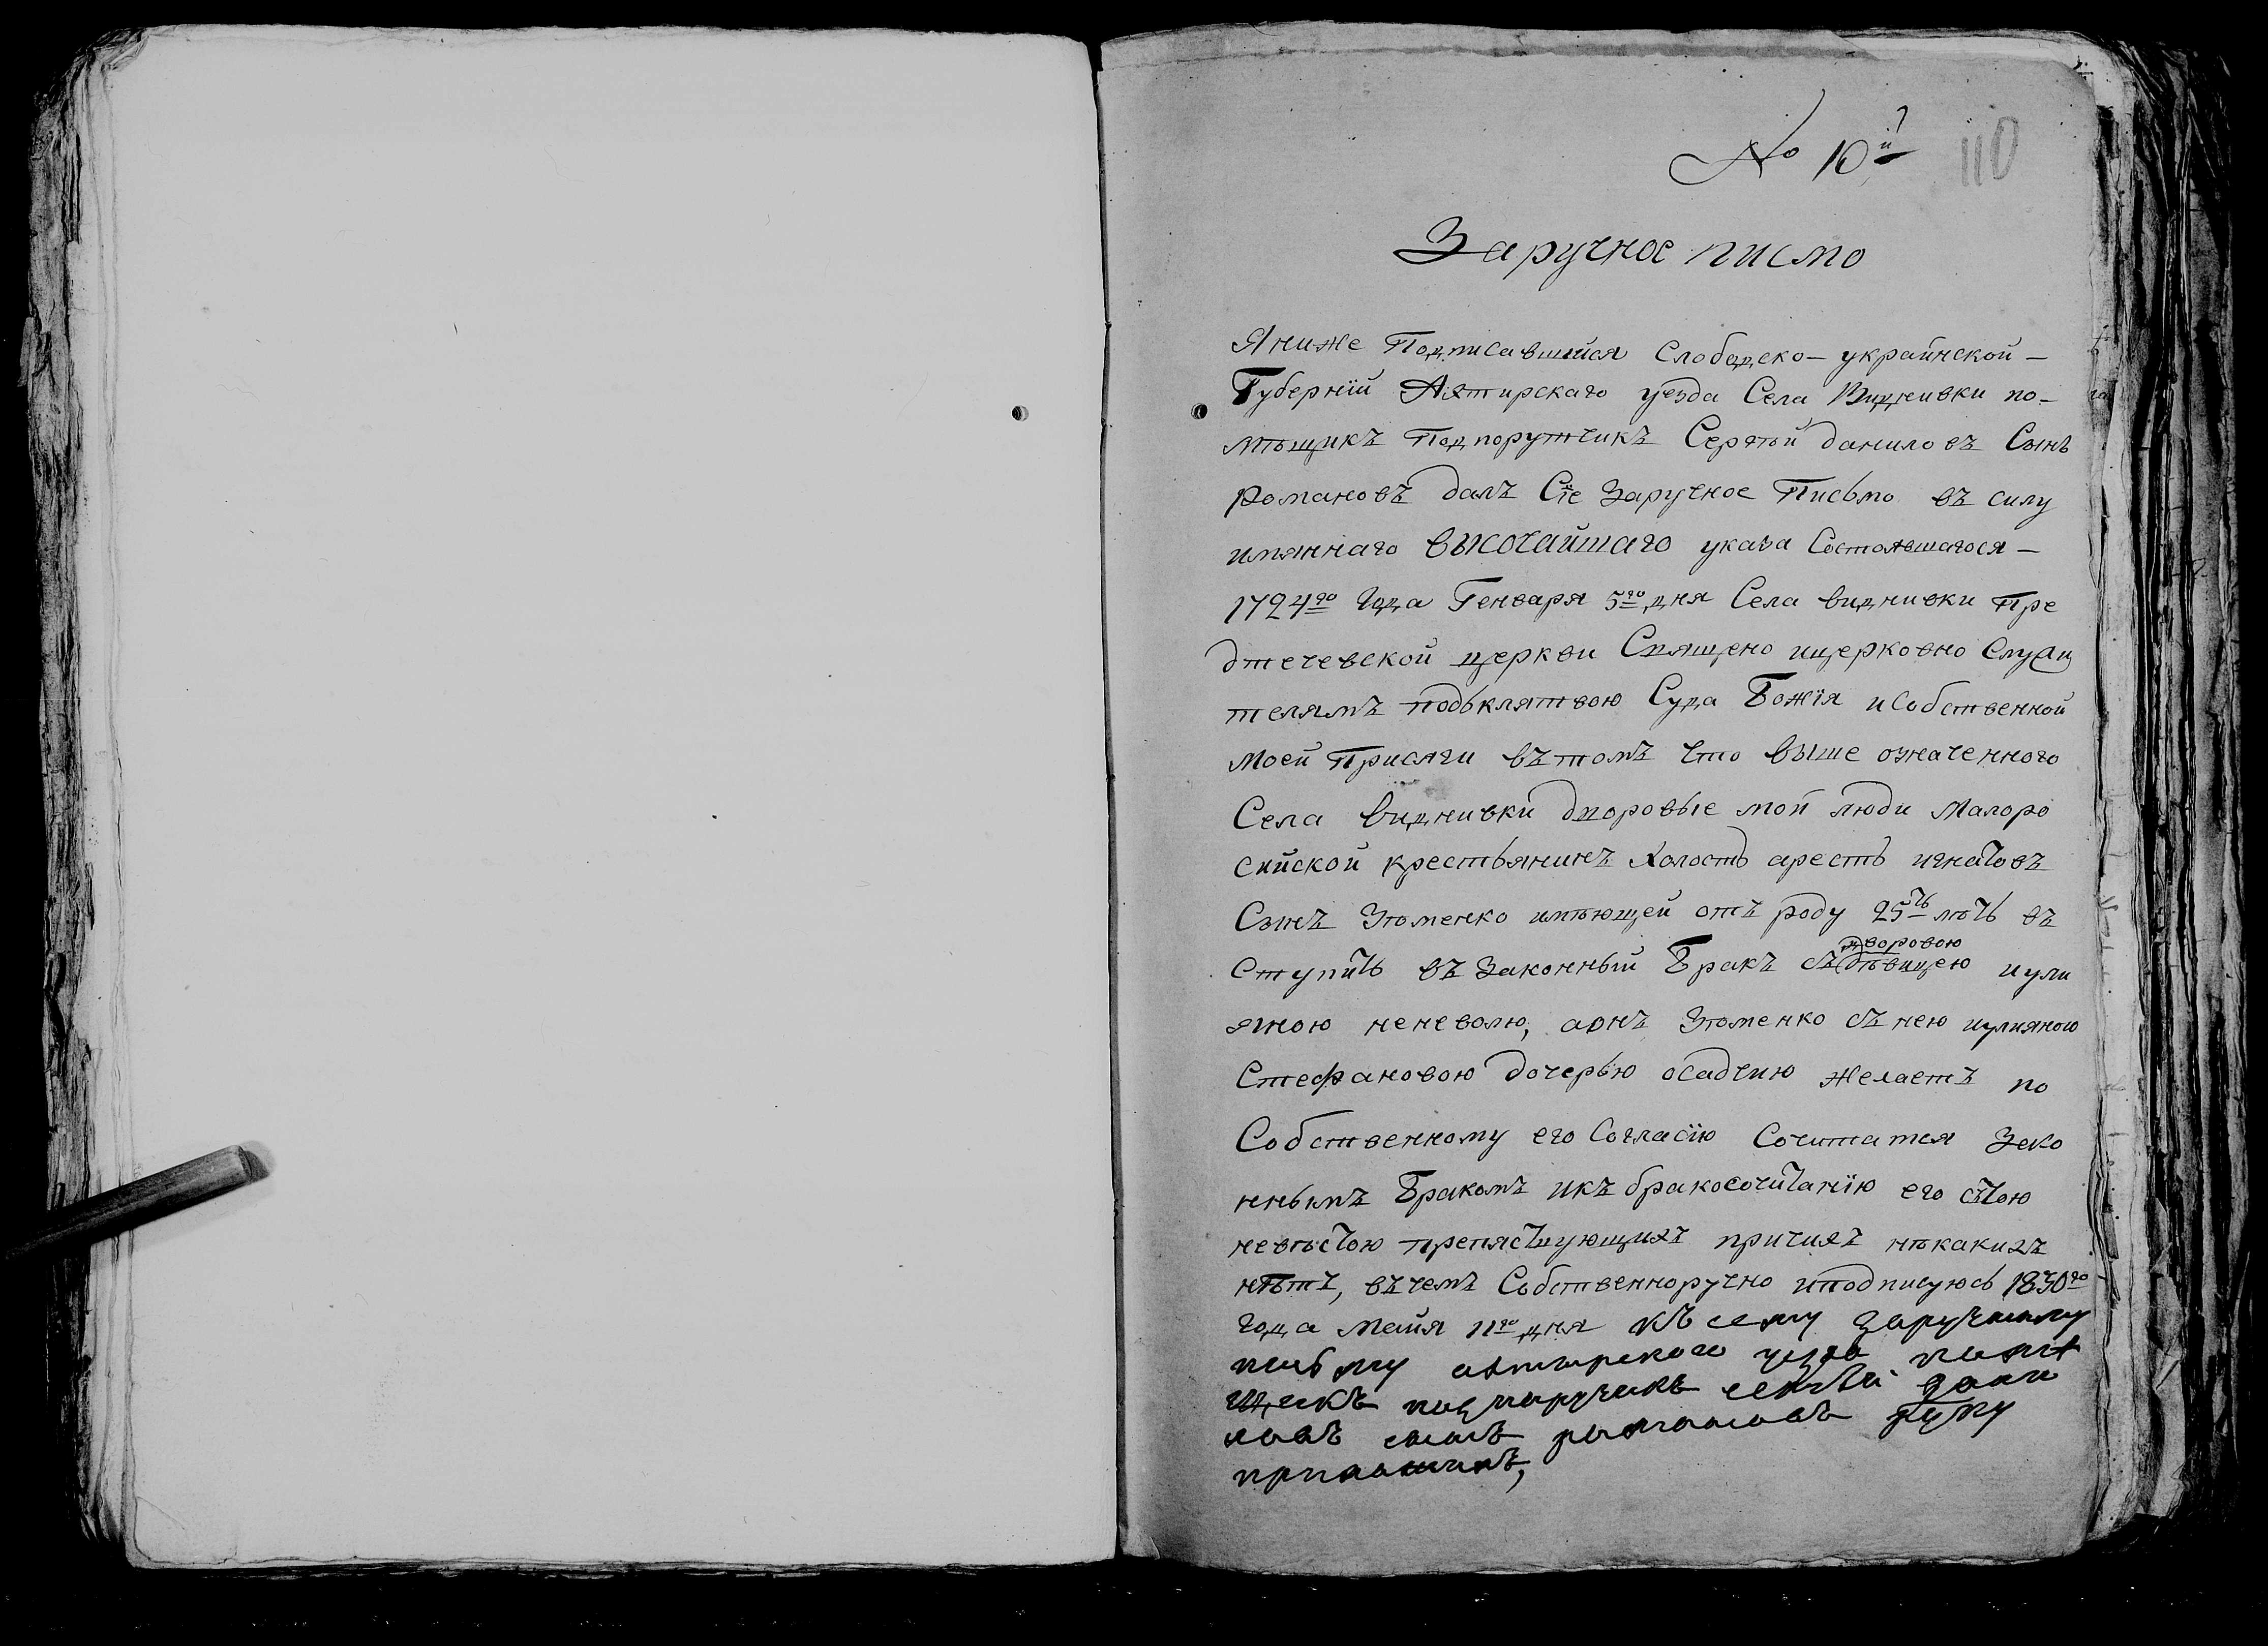 № 10й 110
Заручное писмо
Я ниже Подписавшийся Слободско-украинской-
Губернїй Ахтирскаго уезда Села Видневки по-
мѣщикъ Подпорутчикъ Сергѣй даниловъ Сынъ
Романовъ далъ Сїе Заручное Письмо въ силу
имяннаго высочайшаго указа Состоявшагося-
1724го года Генваря 5го дня Села видневки Пре
дтечевской церкви Священо ицерковно Служи
телямъ подъклятвою Суда Божїя исобственной
моей Присяги вътомъ что выше означенного
Села видневки дворовые мои люди Малоро
сийской крестьянинъ холостъ арестъ игнатовъ
Сынъ Зюменко имѣющей отъ роду 25ть лѣтъ въ
дворовою
Ступитъ въ Законный Бракъ съ дѣвицею иули
яною неневолю, аонъ Зюменко съ нею иулияною
Стефановою дочерью осадчию желаетъ по
Собственному его Согласїю Сочитатся Зако
ннымъ Бракомъ икъ бракосочитанїю его стою
невѣстою препяствующихъ причинъ нѣкакихъ
нѣтъ, въчемъ Собственноручно иподписуюсь 1830го
года мейя 11го дня къ сему заручному
письму ахтирскаго уезда помѣ
щекъ подпоручикъ сергѣй дани
ловъ сынъ романовъ руку
приложилъ,